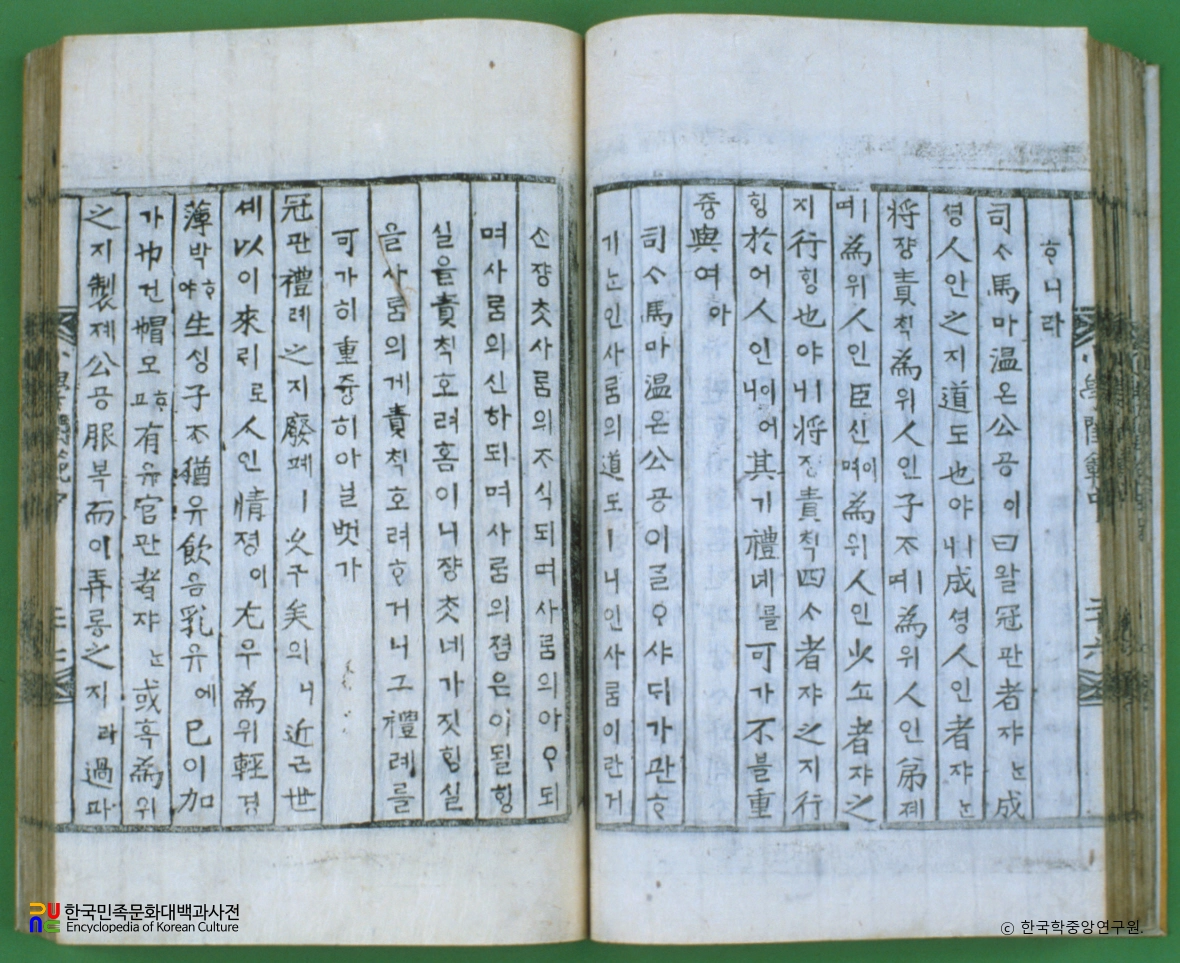 ᄒᆞ니라
司ᄉᆞ馬마溫온公공이曰왈冠관者쟈ᄂᆞᆫ成
셩人인之지道도也야ㅣ니成셩人인者쟈ᄂᆞᆫ
將쟝責ᄎᆡᆨ爲위人인子ᄌᆞᄒᆞ며爲위人인弟뎨
ᄒᆞ며爲위人인臣신ᄒᆞ며爲위人인少쇼者쟈之
지行ᄒᆡᆼ也야ㅣ니將쟝責ᄎᆡᆨ四ᄉᆞ者쟈之지行
ᄒᆡᆼ於어人인이어니其기禮녜를可가不블重
즁與여아
司ᄉᆞ馬마溫온公공이ᄀᆞᆯᄋᆞ샤ᄃᆡ가관ᄒᆞ
기ᄂᆞᆫ인사ᄅᆞᆷ의道도ㅣ니인사ᄅᆞᆷ이란거
ᄉᆞᆫ쟝ᄎᆞᆺ사ᄅᆞᆷ의ᄌᆞ식되며사ᄅᆞᆷ의아ᄋᆞ되
며사ᄅᆞᆷ의신하되며사ᄅᆞᆷ의졈은이될ᄒᆡᆼ
실을責ᄎᆡᆨ호려홈이니쟝ᄎᆞᆺ네가짓ᄒᆡᆼ실
을사ᄅᆞᆷ의게責ᄎᆡᆨ호려ᄒᆞ거니그禮례를
可가히重즁히아닐벗가
冠관禮례之지廢폐ㅣ久구矣의니近근世
셰以이來ᄅᆡ로人인情졍이尤우爲위輕경
薄박ᄒᆞ야生ᄉᆡᆼ子ᄌᆞ猶유飮음乳유에已이加
가巾건帽모ᄒᆞ고有유官관者쟈ᄂᆞᆫ或혹爲위
之지製졔公공服복而이弄롱之지라過과
小學諺範中
二十六
한국민족문화대백과사전
Encyclopedia of Korean Culture
ⓒ 한국학중앙연구원.